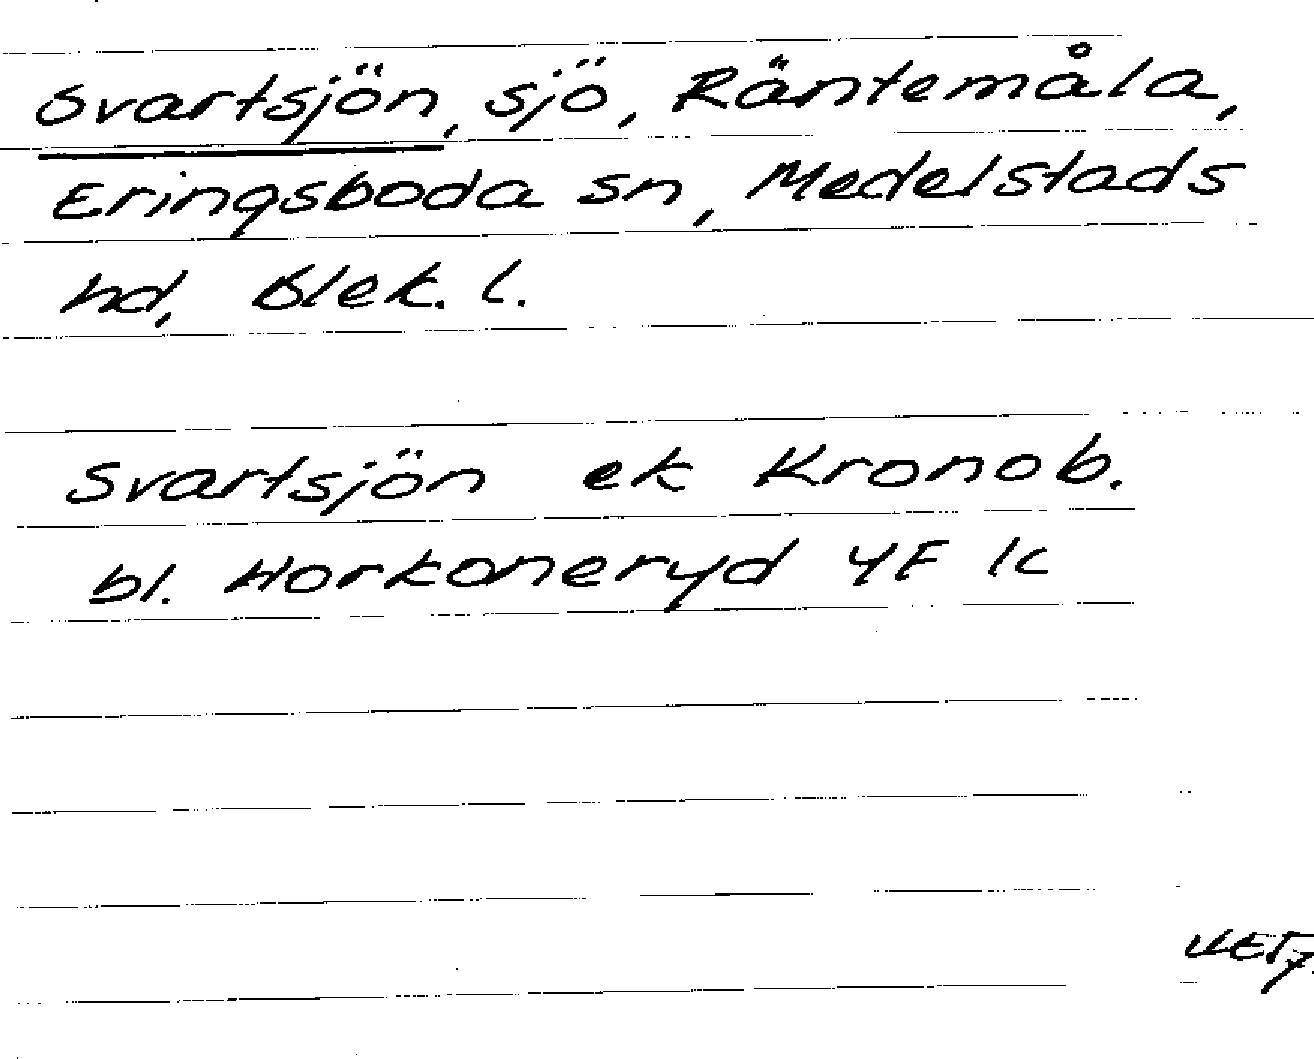 Svartsjön, sjö, Räntemåla,
Eringsboda sn, Medelstads
hd, Blek. l.
Svartsjön ek Kronob.
bl. Horkoneryd 4F 1c